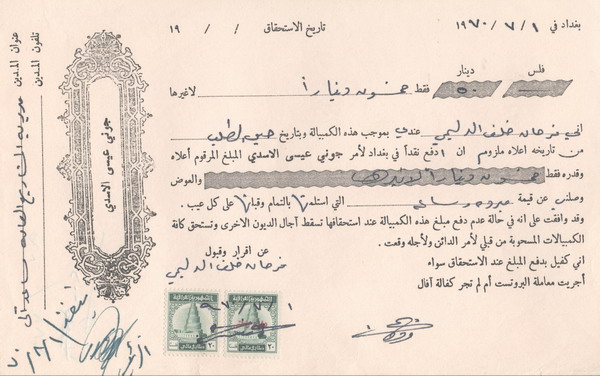 بغداد في ١ / ٧ / ١٩٧٠
تاريخ الاستحقاق / / ١٩
فلس دينار
٥٠ فقط خمسون ديناراً لاغيرها
اني فرحان خلف الدليمي بموجب هذه الكمبيالة وبتاريخ حين الطلب
من تاريخه اعلاه ملزوم ان ادفع نقداً في بغداد لأمر جوني عيسى الاسدي المبلغ المرقوم أعلاه
وقدره فقط خمسون ديناراً لاغيرها والعوض
وصلني عن قيمة التي استلمتها بالتمام وقبلتها على كل عيب .
وقد وافقت على انه في حالة عدم دفع مبلغ هذه الكمبيالة عند استحقاقها تسقط آجال الديون الاخرى وتستحق كافة
الكمبيالات المسحوبة من قبلي لأمر الدائن ولأجله وقعت .
اني كفيل بدفع المبلغ عند الاستحقاق سواء
أجريت معاملة البروتست أم لم تجر كفالة آفال
عن اقرار وقبول
فرحان خلف الدليمي
الجمهورية العراقية
٢٠
الجمهورية العراقية
٢٠
جوني عيسى الاسدي
تلفون المدين
عنوان المدين